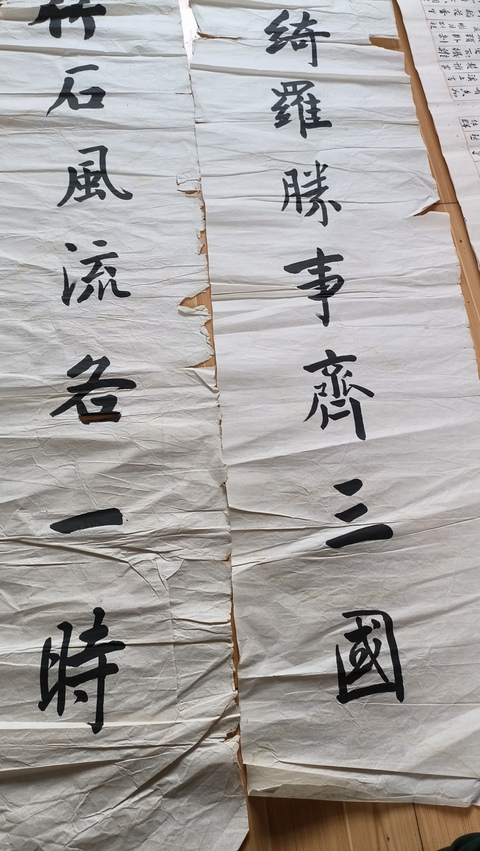 綺羅勝事齊三國
石風流各一時